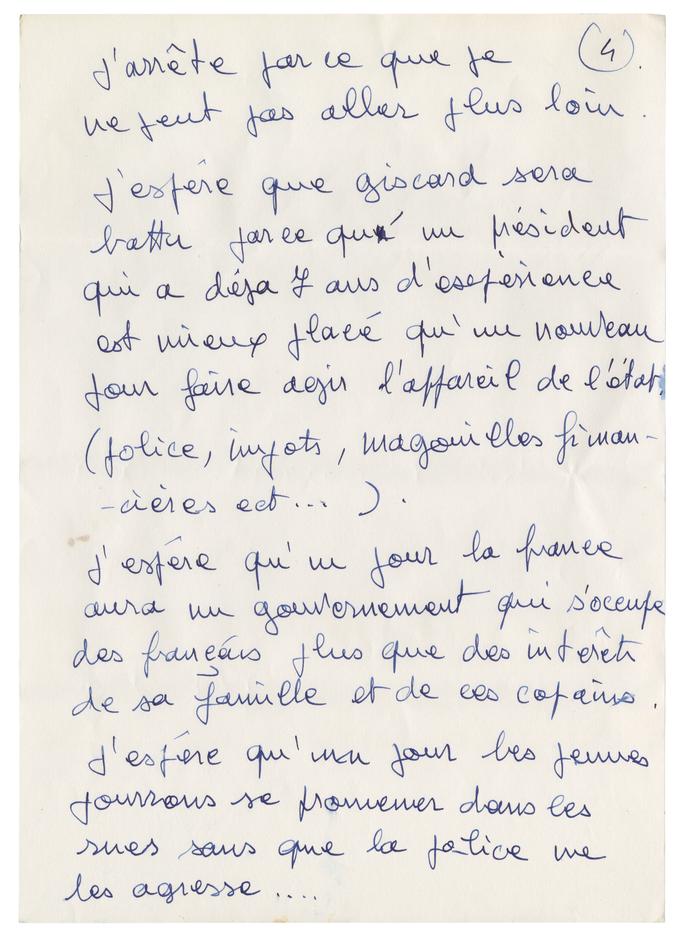 (4).
j'arrête par ce que je
ne peut pas aller plus loin.
J'espère que giscard sera
battu parce qu' un président
qui a déja 7 ans d'esepèrience
est mieux placé qu'un nouveau
pour faire agir l'appareil de l'état.
(police, impots, magouilles finan-
-cières ect... ).
J'espère qu'un jour la france
aura un gouvernement qui s'occupe
des français plus que des intérêts
de sa famille et de ces copains.
J'espère qu'un jour les jeunes
pourrons se promener dans les
rues sans que la police ne
les agresse....